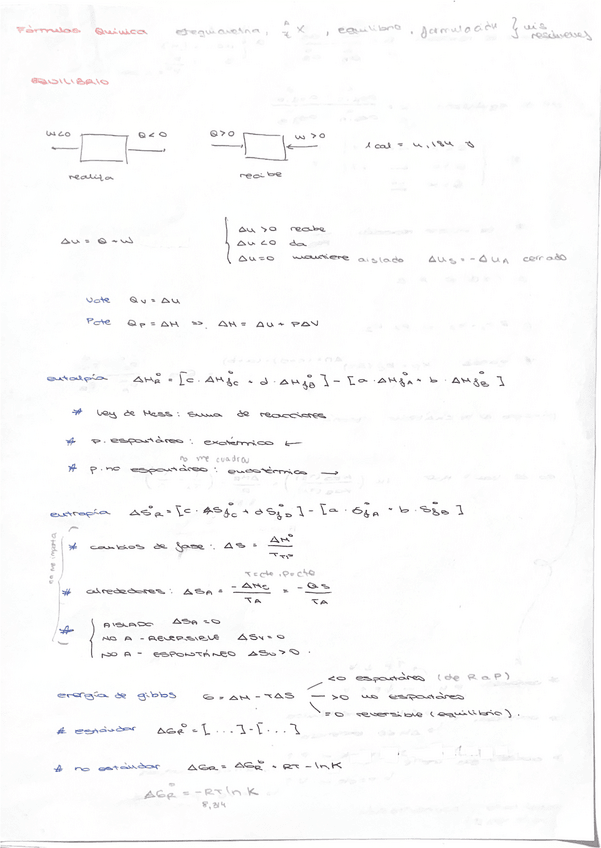 Fórmulas Química estequiometría, A Z X, equilibrio, formulación } mis resúmenes
EQUILIBRIO
W<0 Q<0 Q>0 W>0 1 cal = 4,184 J
realiza recibe
ΔU = Q - W
ΔU >0 recibe
ΔU <0 da
ΔU=0 mantiene aislado ΔUs = -ΔUA cerrado
Vcte Qv = ΔU
Pcte Qp = ΔH => ΔH = ΔU + PΔV
entalpía ΔHR° = [c · ΔHf°C + d · ΔHf°D] - [a · ΔHf°A + b · ΔHf°B]
* Ley de Hess: suma de reacciones
* p. espontáneo: exotérmico ←
no me cuadra
* p. no espontáneo: endotérmico →
entropía ΔSR° = [c · ΔSf°C + d Sf°D] - [a · Sf°A + b · Sf°B]
* cambios de fase: ΔS = ΔH° / TTr°
T=cte, P=cte
* alrededores: ΔSA = -ΔHC / TA = -QS / TA
* AISLADO ΔSA = 0
NO A - REVERSIBLE ΔSU = 0
NO A - ESPONTÁNEO ΔSU > 0.
energía de gibbs G = ΔH - TΔS <0 espontáneo (de R a P)
>0 no espontáneo
=0 reversible (equilibrio).
* estándar ΔGR° = [...] - [...]
* no estándar ΔGR = ΔGR° + RT - lnK
ΔGR° = -RT ln K
8,314